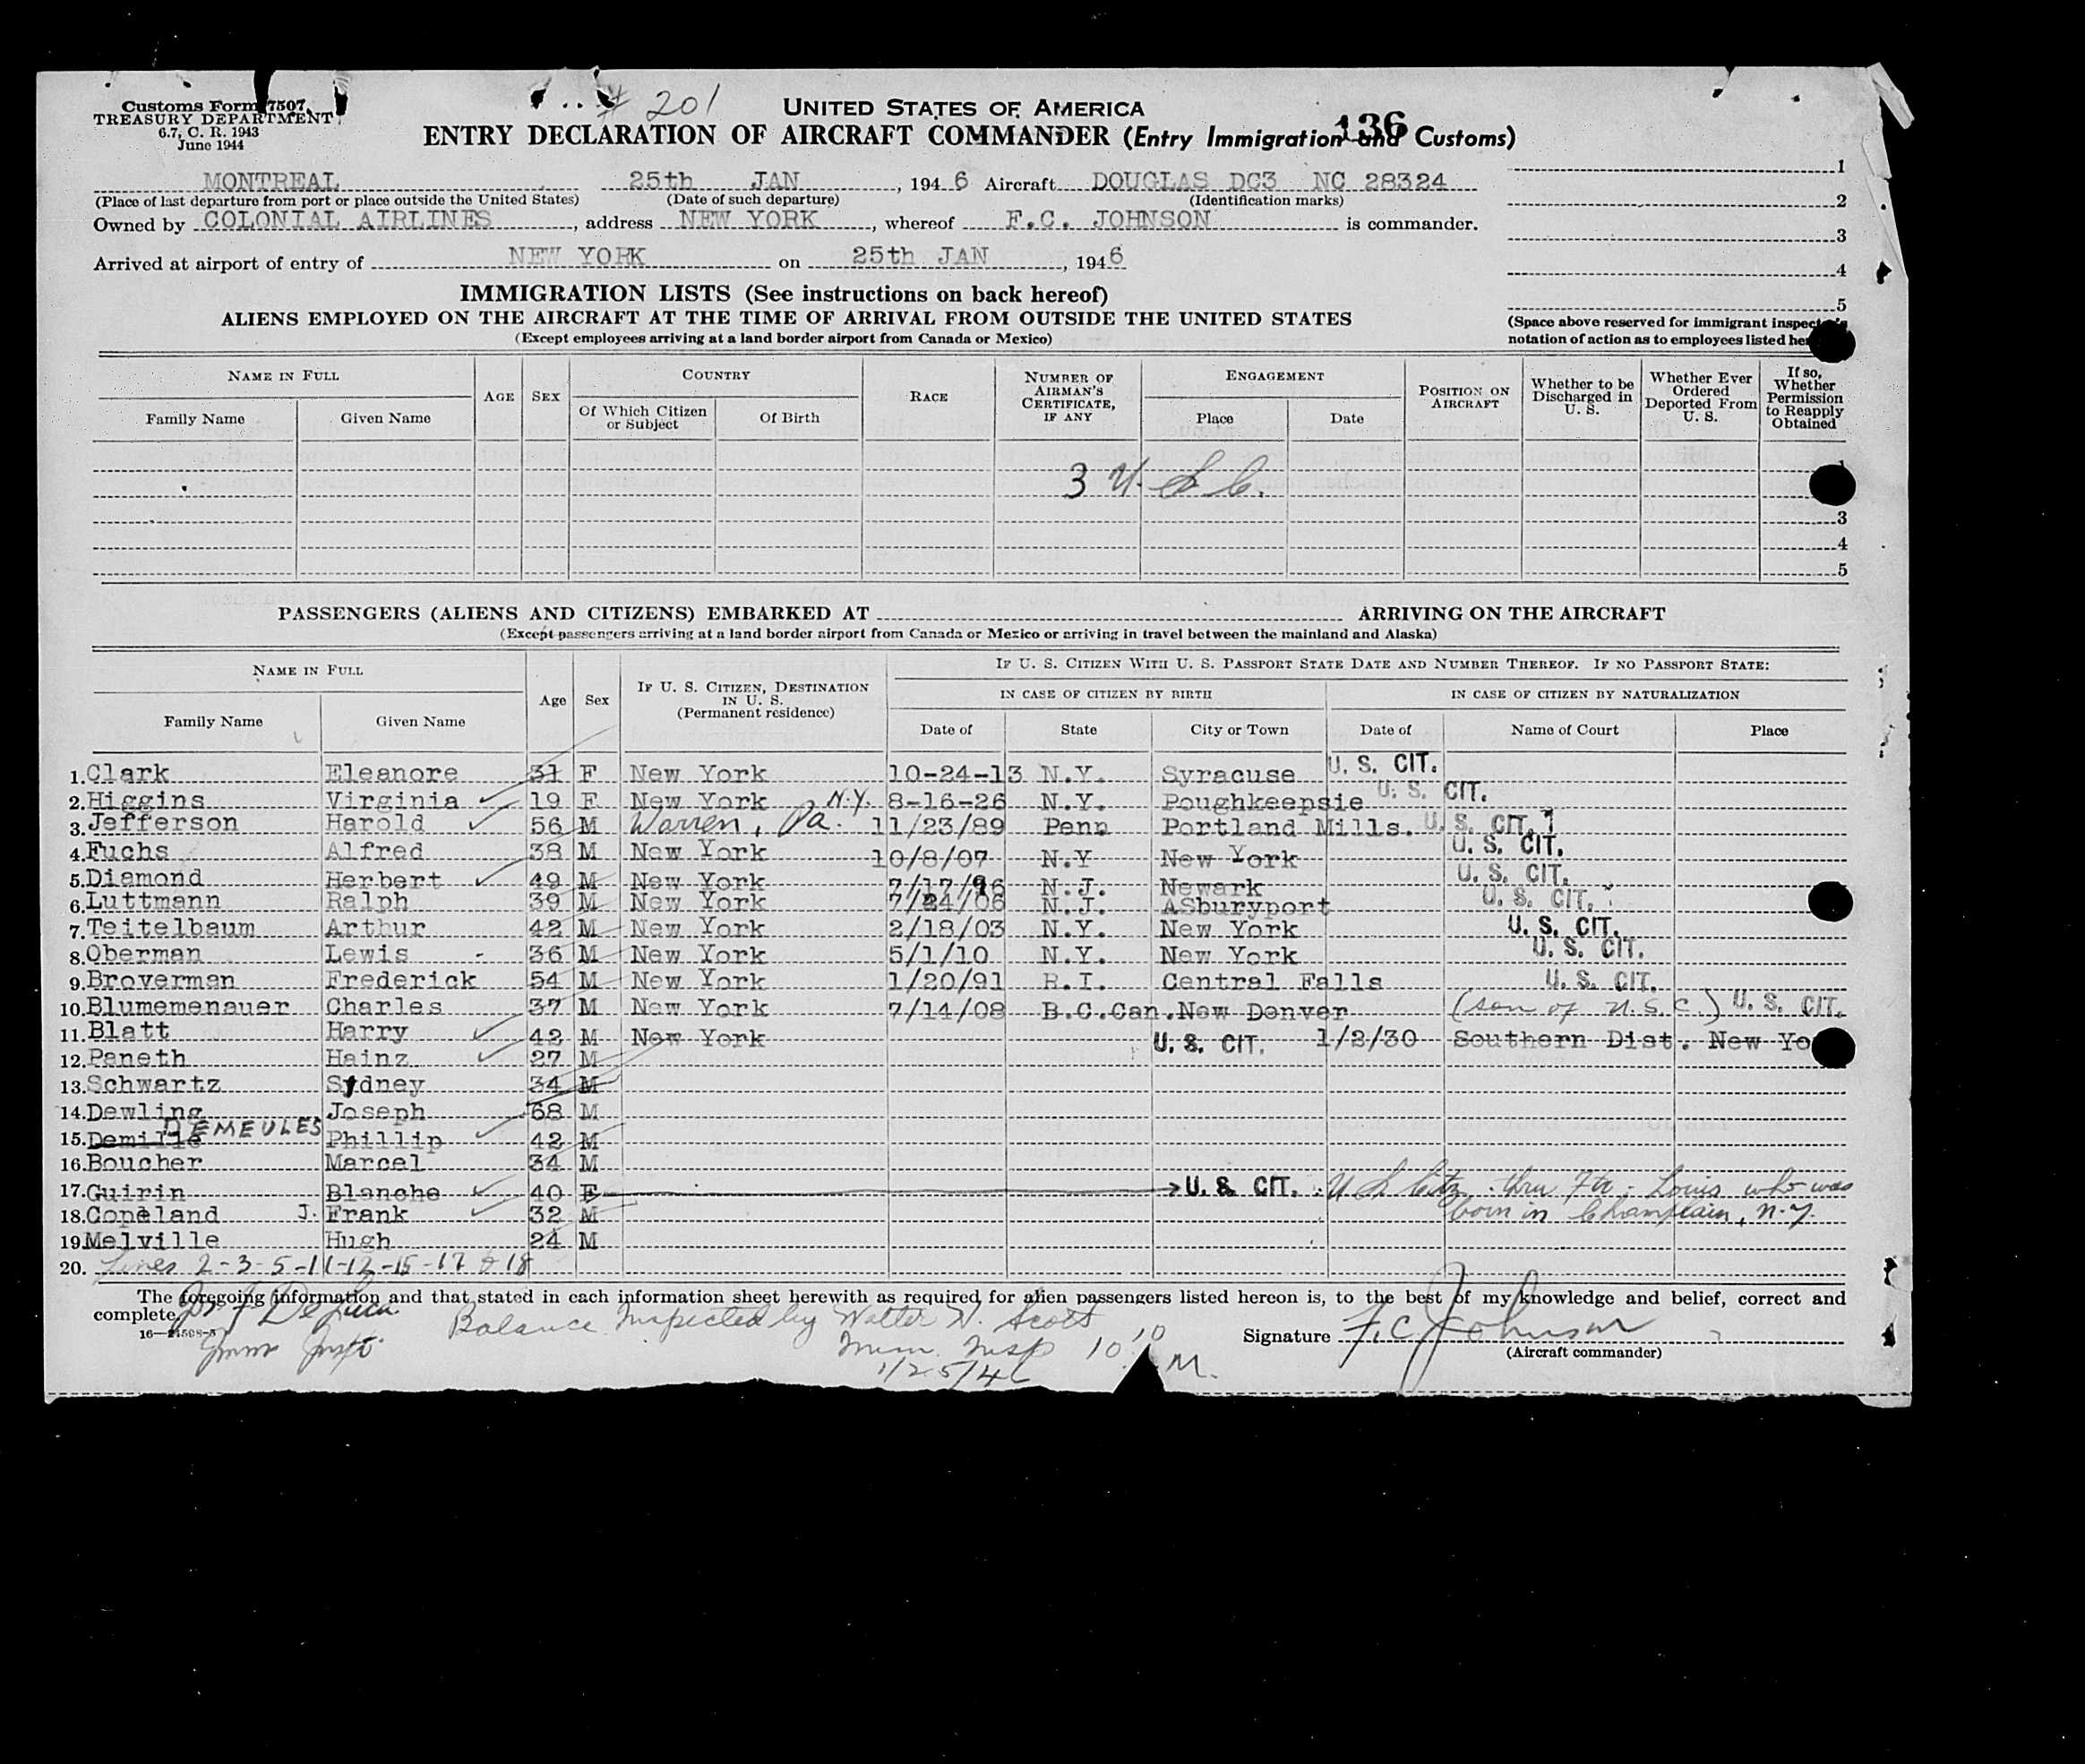 Customs Form 7507
TREASURY DEPARTMENT
6.7, C. R. 1943
June 1944
# 201
UNITED STATES OF AMERICA
136
ENTRY DECLARATION OF AIRCRAFT COMMANDER (Entry Immigration and Customs)
MONTREAL 25th JAN, 1946 Aircraft DOUGLAS DC3 NC 28324
(Place of last departure from port or place outside the United States) (Date of such departure) (Identification marks)
Owned by COLONIAL AIRLINES, address NEW YORK, whereof F.C. JOHNSON is commander.
Arrived at airport of entry of NEW YORK on 25th JAN, 1946
1
2
3
4
5
(Space above reserved for immigrant inspector's
notation of action as to employees listed
IMMIGRATION LISTS (See instructions on back hereof)
ALIENS EMPLOYED ON THE AIRCRAFT AT THE TIME OF ARRIVAL FROM OUTSIDE THE UNITED STATES
(Except employees arriving at a land border airport from Canada or Mexico)
NAME IN FULL
Family Name Given Name
AGE SEX
COUNTRY
Of Which Citizen or Subject Of Birth
RACE
NUMBER OF AIRMAN'S CERTIFICATE, IF ANY
ENGAGEMENT
Place Date
POSITION ON AIRCRAFT
Whether to be Discharged in U. S.
Whether Ever Ordered Deported From U. S.
If so, Whether Permission to Reapply Obtained
1
3 U. S C.
3
4
5
PASSENGERS (ALIENS AND CITIZENS) EMBARKED AT ARRIVING ON THE AIRCRAFT
(Except passengers arriving at a land border airport from Canada or Mexico or arriving in travel between the mainland and Alaska)
NAME IN FULL
Family Name Given Name
Age Sex
IF U. S. CITIZEN, DESTINATION IN U. S.
(Permanent residence)
IF U. S. CITIZEN WITH U. S. PASSPORT STATE DATE AND NUMBER THEREOF. IF NO PASSPORT STATE:
IN CASE OF CITIZEN BY BIRTH IN CASE OF CITIZEN BY NATURALIZATION
Date of State City or Town Date of Name of Court Place
1. Clark Eleanore 31 F New York 10-24-13 N.Y. Syracuse U. S. CIT.
2. Higgins Virginia ✓ 19 F New York N.Y. 8-16-26 N.Y. Poughkeepsie U. S. CIT.
3. Jefferson Harold ✓ 56 M Warren, Pa. 11/23/89 Penn Portland Mills. U. S. CIT.
4. Fuchs Alfred 38 M New York 10/8/07 N.Y New York U. S. CIT.
5. Diamond Herbert ✓ 49 M New York 7/17/96 N.J. Newark U. S. CIT.
6. Luttmann Ralph 39 M New York 7/24/06 N.J. ASburyport U. S. CIT.
7. Teitelbaum Arthur 42 M New York 2/18/03 N.Y. New York U. S. CIT.
8. Oberman Lewis 36 M New York 5/1/10 N.Y. New York U. S. CIT.
9. Broverman Frederick 54 M New York 1/20/91 R.I. Central Falls U. S. CIT.
10. Blumemenauer Charles 37 M New York 7/14/08 B.C.Can. New Denver (son of U.S.C.) U. S. CIT.
11. Blatt Harry ✓ 42 M New York U. S. CIT. 1/2/30 Southern Dist. New Yo
12. Paneth Hainz ✓ 27 M
13. Schwartz Sydney 34 M
14. Dewling Joseph 68 M
15. Demille DEMEULES Phillip ✓ 42 M
16. Boucher Marcel 34 M
17. Guirin Blanche ✓ 40 F → U. S. CIT. U S Citz. thru Ftr. Louis who was
born in Champlain, N.Y.
18. Copeland J. Frank ✓ 32 M
19. Melville Hugh 24 M
20. Lines 2-3-5-11-12-15-17 & 18
The foregoing information and that stated in each information sheet herewith as required for alien passengers listed hereon is, to the best of my knowledge and belief, correct and
complete.
Balance Inspected by Walter W. Scott
Imm. Insp 10:10 M.
1/25/46
Imm Inspt.
Signature F.C. Johnson
(Aircraft commander)